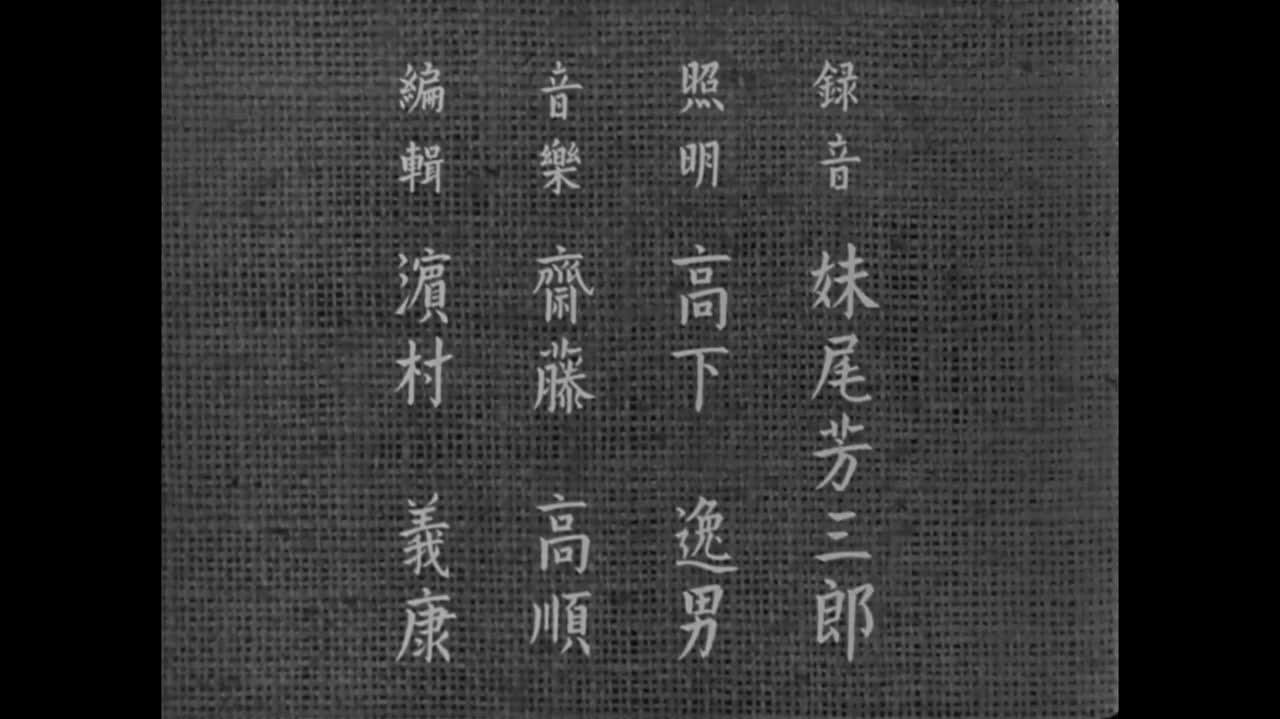 録音 妹尾芳三郎
照明 高下 逸男
音樂 齋藤 高順
編輯 濵村 義康